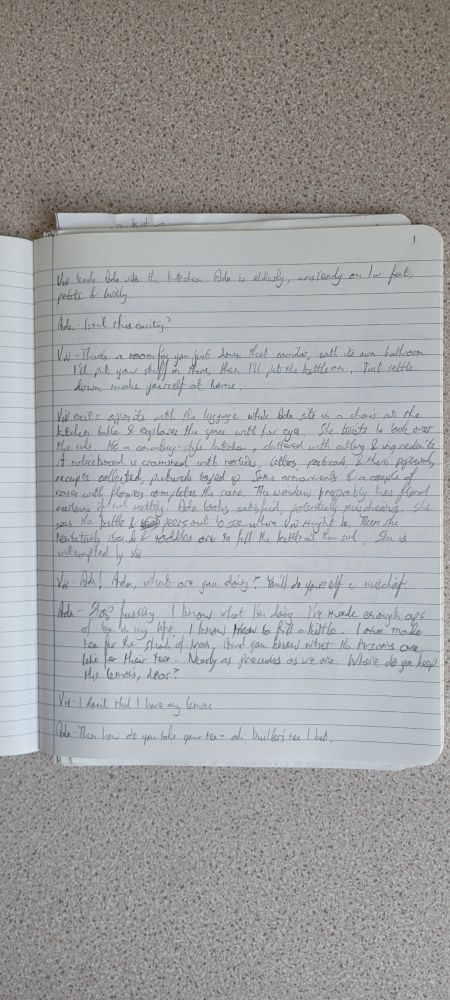 1
Viv leads Ada into the kitchen. Ada is elderly, unsteady on her feet,
petite &
Ada - Isn't this exciting?
Viv - There's a room for you just down that corridor, with its own bathroom
I'll put your stuff in there, then I'll put the kettle on. Just settle
down, make yourself at home.
Viv exits opposite with the luggage while Ada sits in a chair at the
kitchen table & explores the space with her eyes. She twists to look over
the side. It's a country-style kitchen, cluttered with & ingredients
A noticeboard is crammed with notices, letters, postcards, &
recipes collected, pictures taped up. Some ornaments & a couple of
vases with flowers complete the scene. The window probably has floral
curtains or net netting. Ada looks satisfied, potentially She
sees the kettle & peers out to see where Viv might be. Then she
tentatively stands & toddles over to fill the kettle at the sink. She is
interrupted by Viv
Viv - Ada, Ada, what are you doing? You'll do yourself a mischief.
Ada - Stop fussing. I know what I'm doing. I've made enough cups
of tea in my life. I know how to fill a kettle. I once made
tea for the of And you know what the are
like for their tea. Nearly as precious as we are. Where do you keep
the lemons, dear?
Viv - I don't think I have any lemons
Ada - Then how do you take your tea - oh, builder's tea I bet.